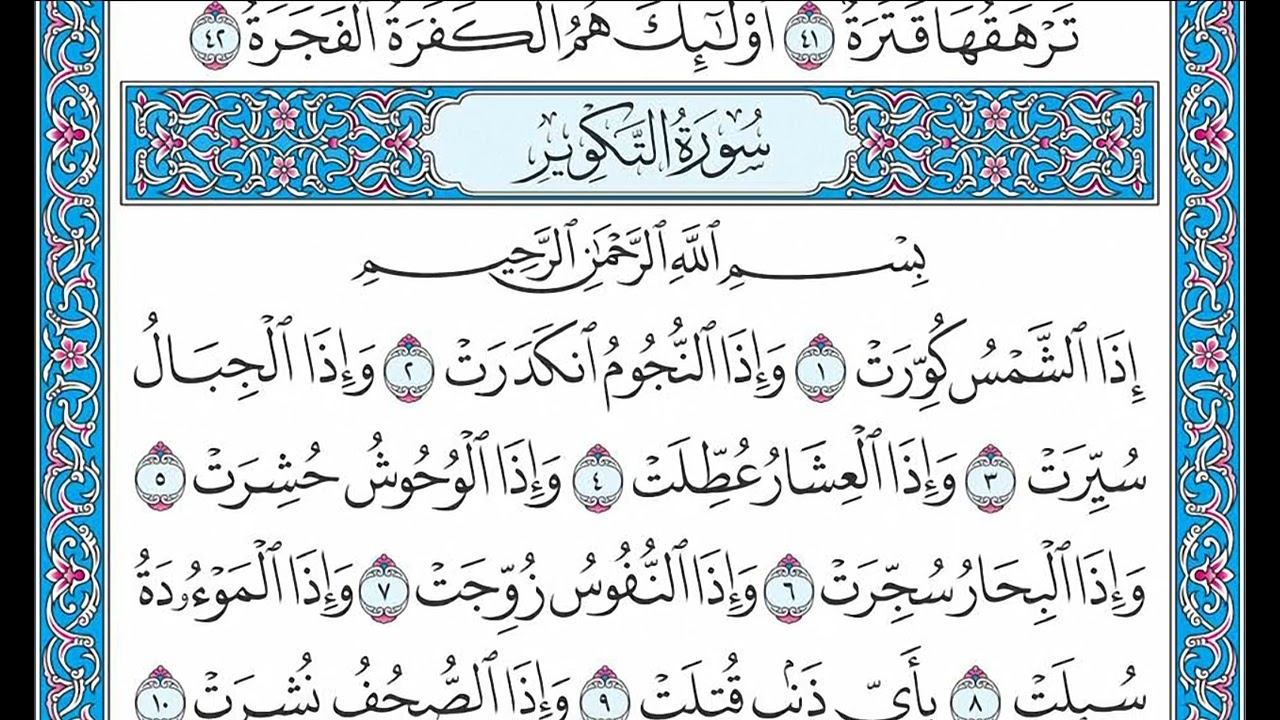 تَرْهَقُهَا قَتَرَةٌ ٤١ أُوْلَٰٓئِكَ هُمُ ٱلْكَفَرَةُ ٱلْفَجَرَةُ ٤٢
سُورَةُ التَّكْوِيرِ
بِسْمِ ٱللَّهِ ٱلرَّحْمَٰنِ ٱلرَّحِيمِ
إِذَا ٱلشَّمْسُ كُوِّرَتْ ١ وَإِذَا ٱلنُّجُومُ ٱنكَدَرَتْ ٢ وَإِذَا ٱلْجِبَالُ
سُيِّرَتْ ٣ وَإِذَا ٱلْعِشَارُ عُطِّلَتْ ٤ وَإِذَا ٱلْوُحُوشُ حُشِرَتْ ٥
وَإِذَا ٱلْبِحَارُ سُجِّرَتْ ٦ وَإِذَا ٱلنُّفُوسُ زُوِّجَتْ ٧ وَإِذَا ٱلْمَوْءُۥدَةُ
سُئِلَتْ ٨ بِأَيِّ ذَنۢبٍ قُتِلَتْ ٩ وَإِذَا ٱلصُّحُفُ نُشِرَتْ ١٠